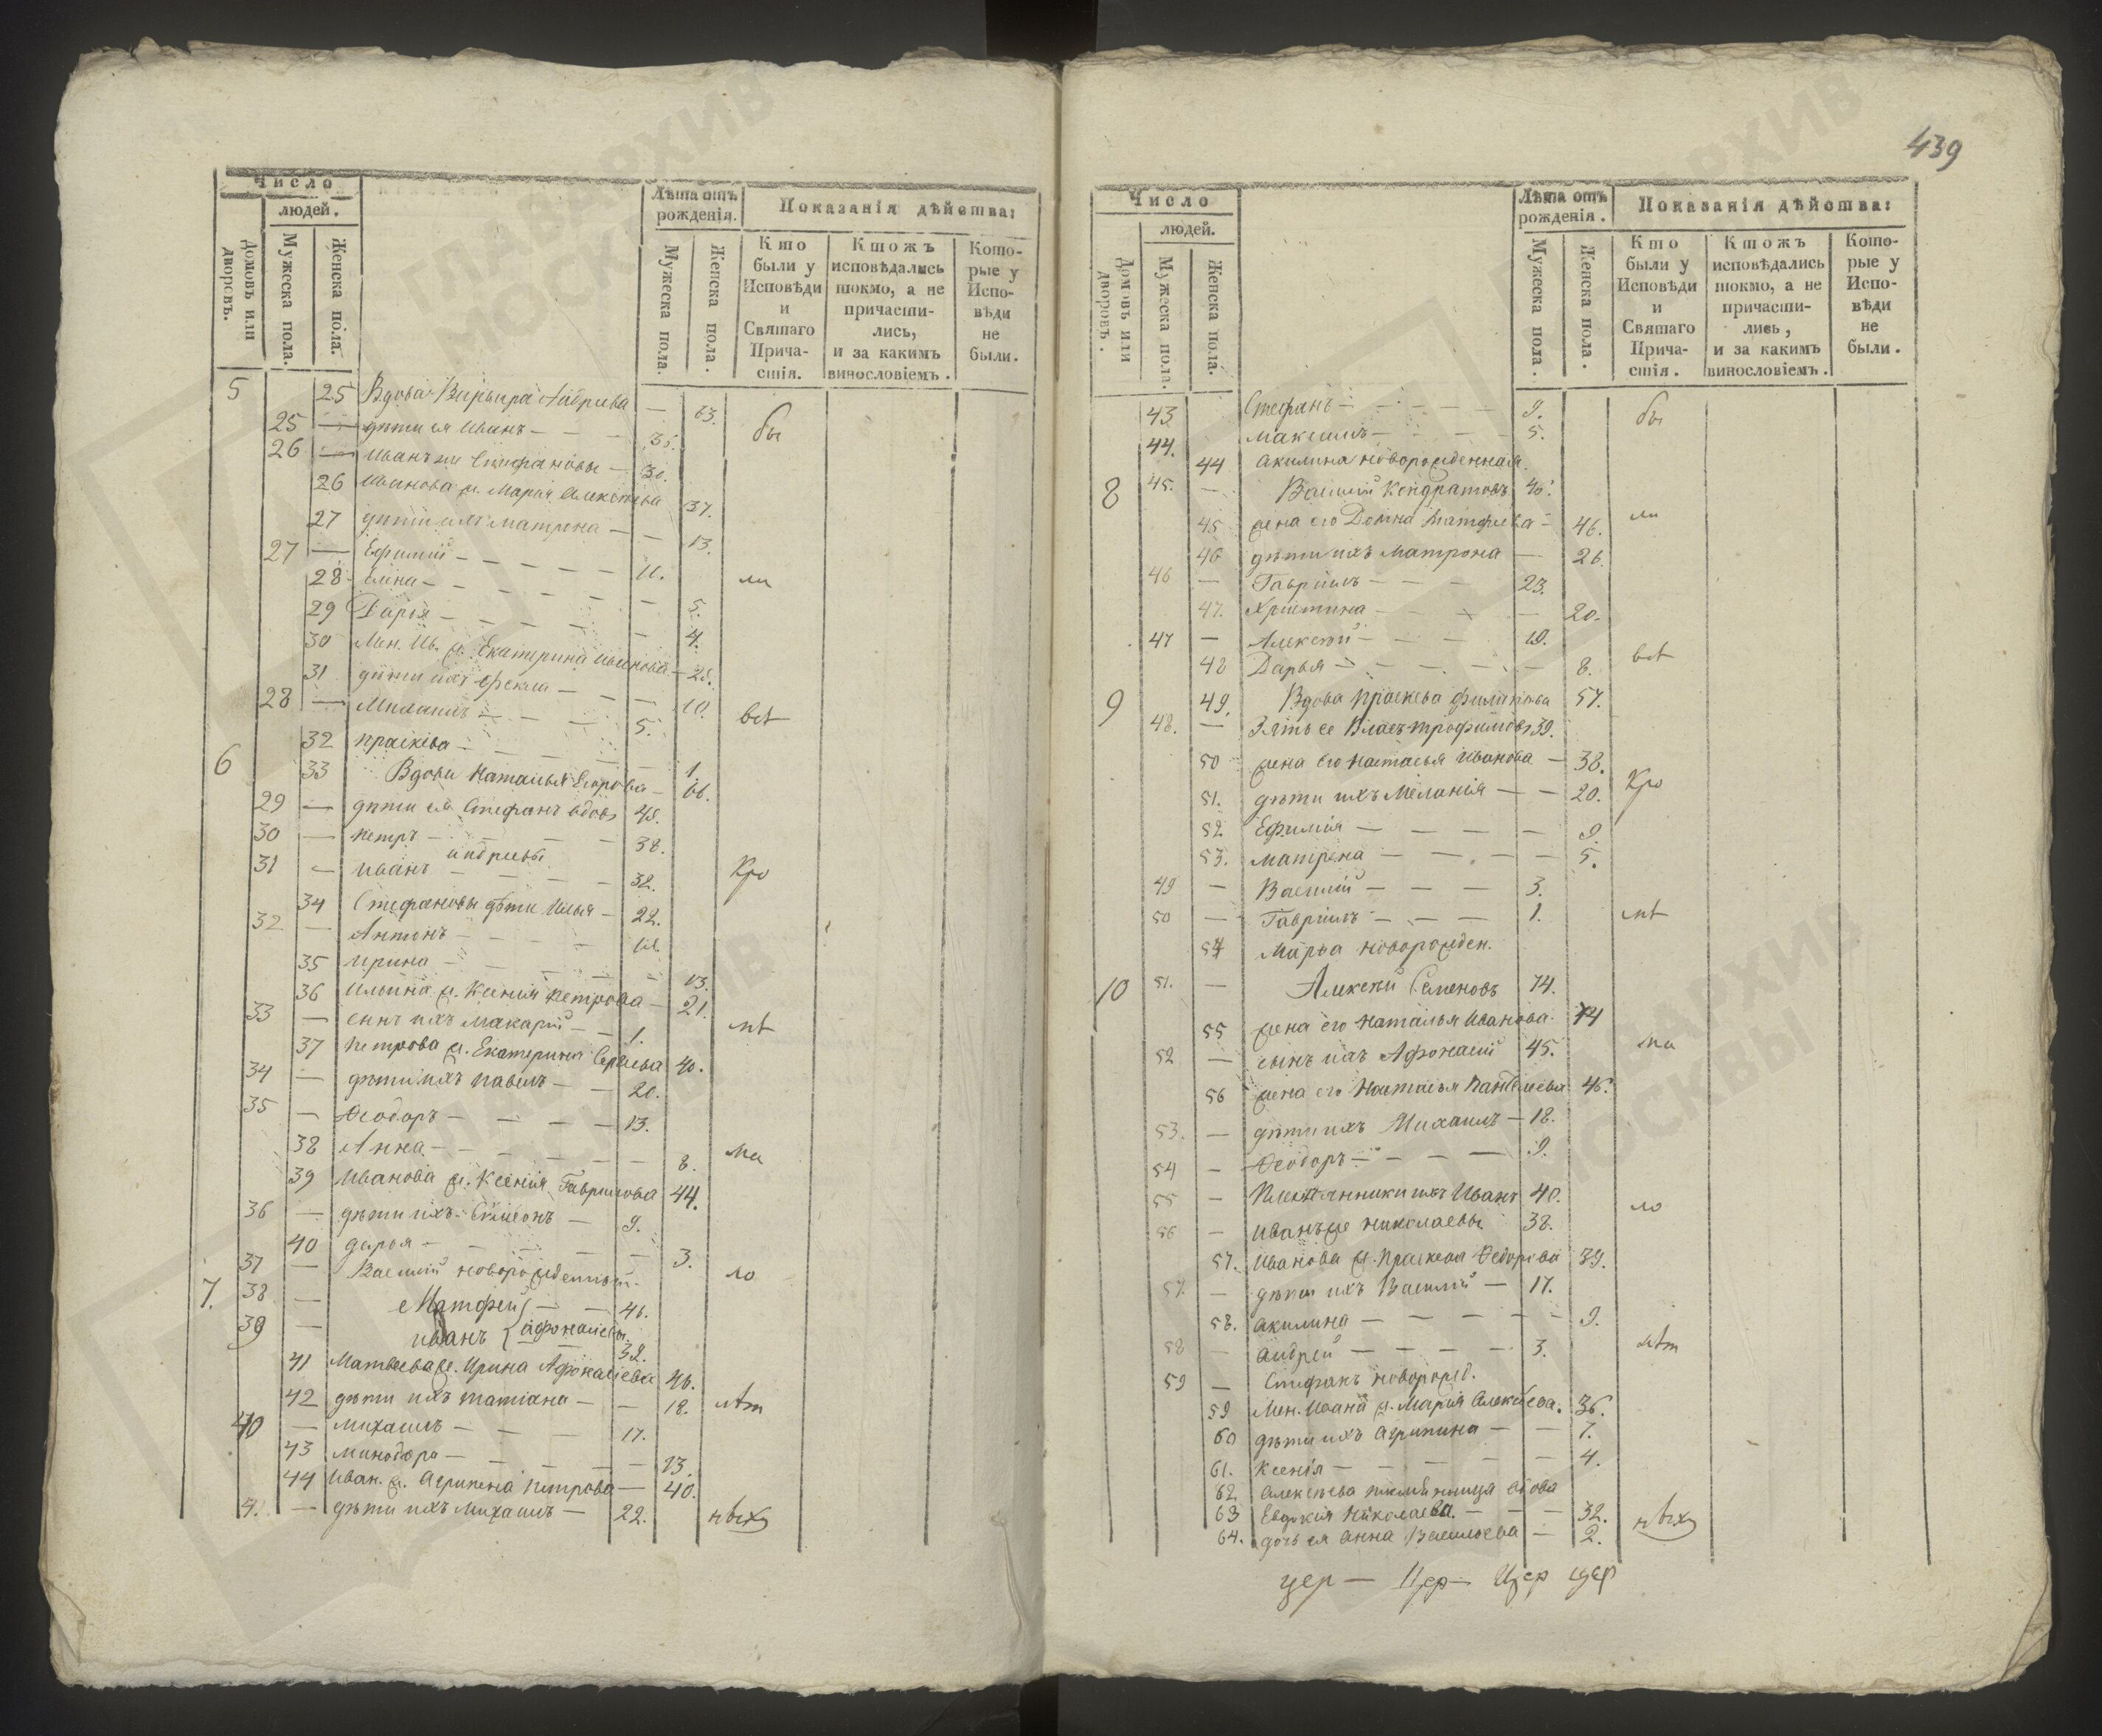 Число
людей.
Домовъ или дворовъ.
Мужеска пола.
Женска пола.
Лѣта отъ рожденія.
Мужеска пола.
Женска пола.
Показанія дѣйства:
Кто были у Исповѣди и Святаго Прича-стія.
Ктожъ исповѣдались токмо, а не причасти-лись, и за какимъ винословіемъ.
Кото-рые у Испо-вѣди не были.
5 25 Вдова Варвара — 63. бы
25 — дѣти ея Иванъ — — — 35.
26 — Иванъ же Стефановы — 30.
26 Иванова ж. Марія Алексѣева 37.
27 дѣти ихъ Матрена — — 13.
27 — Ефимій — — — — 11. ли
28 Елена — — — — — 5.
29 Дарья — — — — — 4.
30 Мен. Ив. ж. Екатерина Иванова — 28.
31 дѣти ихъ Ѳекла — — — 10.
28 — Михаилъ — — — 5. всѣ
32 Праскева — — — — 1.
6 33 Вдова Наталья Егорова — 66.
29 — дѣти ея Стефанъ вдовъ 48.
30 — Петръ — — — 38.
андреевы
31 — Иванъ — — — — 32. Кро
34 Стефановы дѣти Илья — 22.
32 — Антонъ — — — —
35 Ирина — — — — — 13.
36 Ильина ж. Ксенія Петрова — 21.
33 — сынъ ихъ Макарій — — 1. мѣ
37 Петрова ж. Екатерина Сергѣева 40.
34 — дѣти ихъ Павелъ — — 20.
35 — Ѳеодоръ — — — — 13.
38 Анна — — — — — — 8. ма
39 Иванова ж. Ксенія Гаврилова 44.
36 — дѣти ихъ Симеонъ — 9.
40 дарья — — — — — 3.
37 — Василій новорожденный. ло
7. 38 — Матфей — — 46.
39 — Иванъ } афонасьевы. 32.
41 Матвеева ж. Ирина Афонасіева 46.
42 дѣти ихъ татіана — — 18. лѣт
40 — Михаилъ — — — 17.
43 Минодора — — — — — 13.
44 Иван. ж. Агрипена Петрова — 40.
41 — дѣти ихъ Михаилъ — 22. нѣхъ
439
Число
людей.
Домовъ или дворовъ.
Мужеска пола.
Женска пола.
Лѣта отъ рожденія.
Мужеска пола.
Женска пола.
Показанія дѣйства:
Кто были у Исповѣди и Святаго Прича-стія.
Ктожъ исповѣдались токмо, а не причасти-лись, и за какимъ винословіемъ.
Кото-рые у Испо-вѣди не были.
43 Стефанъ — — — — — 9. бы
44. Максимъ — — — — 5.
44 Акилина новорожденная.
8 45. — Василій Кондратовъ 48. ли
45 жена его Домна Матфеева — 46.
46 дѣти ихъ Матрона — 26.
46 — Гавріилъ — — — 23.
47. Христина — — — — 20.
47 — Алексѣй — — — 10.
48 Дарья — — — — — 8. всѣ
9 49. Вдова Праскева Филипова 57.
48. — Зять ее Власъ Трофимовъ 39.
50 жена его Настасья Иванова — 38. Кро
51. дѣти ихъ Меланія — — 20.
52 Ефимія — — — — 9.
53. Матрена — — — — 5.
49 — Василій — — — 3.
50 — Гавріилъ — — — 1. мѣ
54 Марѳа новорожден.
10 51. — Алексѣй Семеновъ 74.
55 жена его Наталья Иванова 74
52 — сынъ ихъ Афонасій 45. ма
56 жена его Настасья Пантелиева 45.
53. — дѣти ихъ Михаилъ — 18.
54 — Ѳеодоръ — — — — 9.
55 — Племянники ихъ Иванъ 40. ло
56 — Иванъ же Николаевы 38.
57. Иванова ж. Праскевя Ѳедорова 39.
57. — дѣти ихъ Василій — 17.
58. Акилина — — — — — 9.
58 — Андрей — — — — 3. лѣт
59 — Стефанъ новорожд.
59 Мен. Ивана ж. Марія Алексѣева. 36.
60 дѣти ихъ Агрипина — — 7.
61. Ксенія — — — — — 4.
62 Алексѣева племянница вдова
63 Евдокія Николаева. — — — 32. нѣхъ
64. дочь ея Анна Васильева — 2.
цер — цер — цер цер
ГЛАВАРХИВ МОСКВЫ